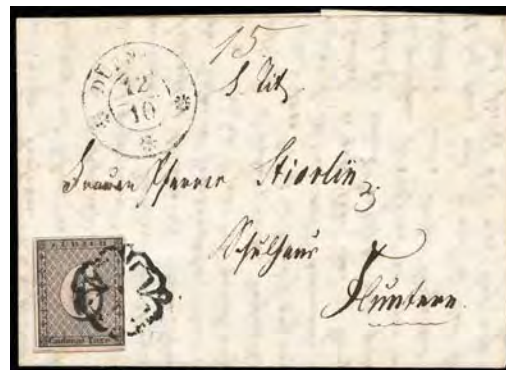 15
DÜR
12
10
S. Tit.
Frauen Pfarrer Stierlin
Schulhaus
Fluntern.
ZÜRICH
6
Cantonal-Taxe